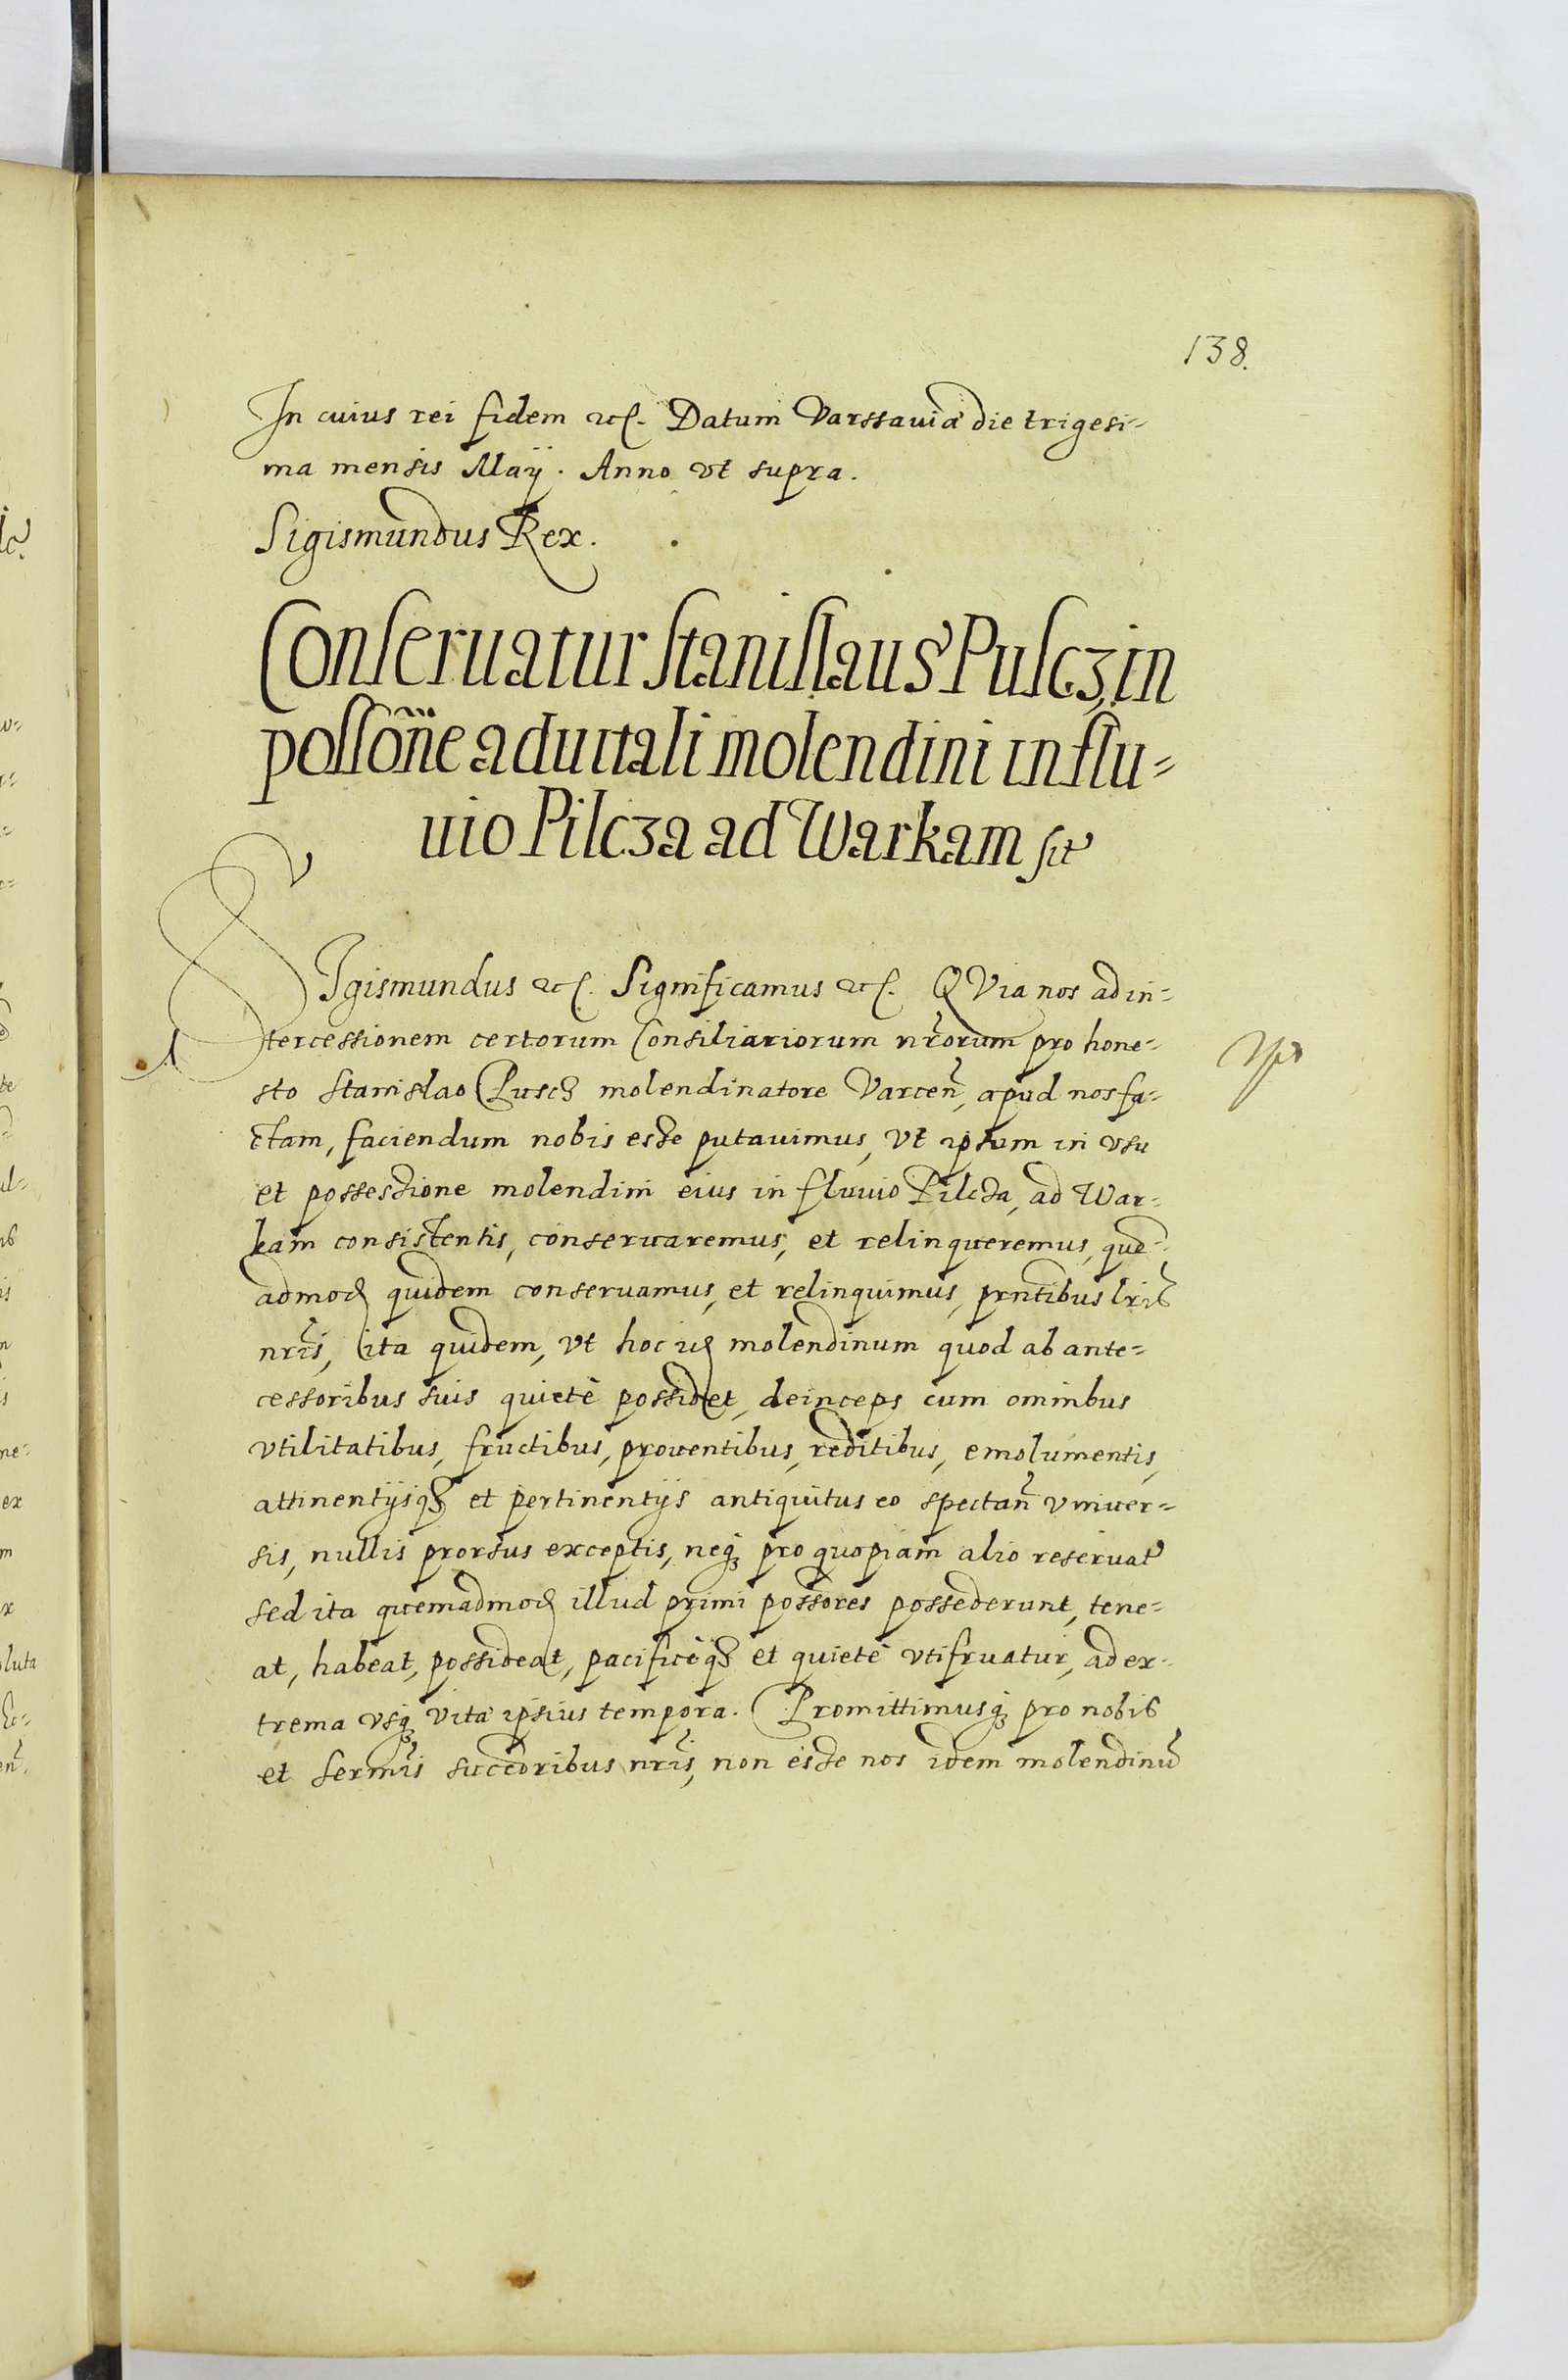 138.
In cuius rei fidem etc. Datum Varssauiæ die trigesi-
ma mensis Maÿ. Anno vt supra.
Sigismundus Rex.
Conseruatur Stanislaus Pulcz, in
possõne aduitali molendini in flu-
uio Pilcza ad Warkam sit
SIgismundus etc. Significamus etc. QVia nos ad in-
tercessionem certorum Consiliariorum nrorum pro hone-
sto Stanislao Puscz molendinatore Varcen, apud nos fa-
ctam, faciendum nobis esse putauimus, vt ipsum in vsu
et possessione molendini eius in fluuio Pilcza, ad War-
kam consistentis, conseruaremus, et relinqueremus, que-
admod quidem conseruamus, et relinquimus, prntibus lris
nris, ita quidem, vt hoc id molendinum quod ab ante-
cessoribus suis quietè possidet, deinceps cum omnibus
vtilitatibus, fructibus, prouentibus, reditibus, emolumentis,
attinentijsq3 et pertinentijs antiquitus eo spectan vniuer-
sis, nullis prorsus exceptis, neq3 pro quopiam alio reseruat
sed ita quemadmod illud primi possores possederunt, tene-
at, habeat, possideat, pacificèq3 et quietè vtifruatur, ad ex-
trema vsq3 vitæ ipsius tempora. Promittimusq3 pro nobis
et sermis succoribus nris, non esse nos idem molendinũ